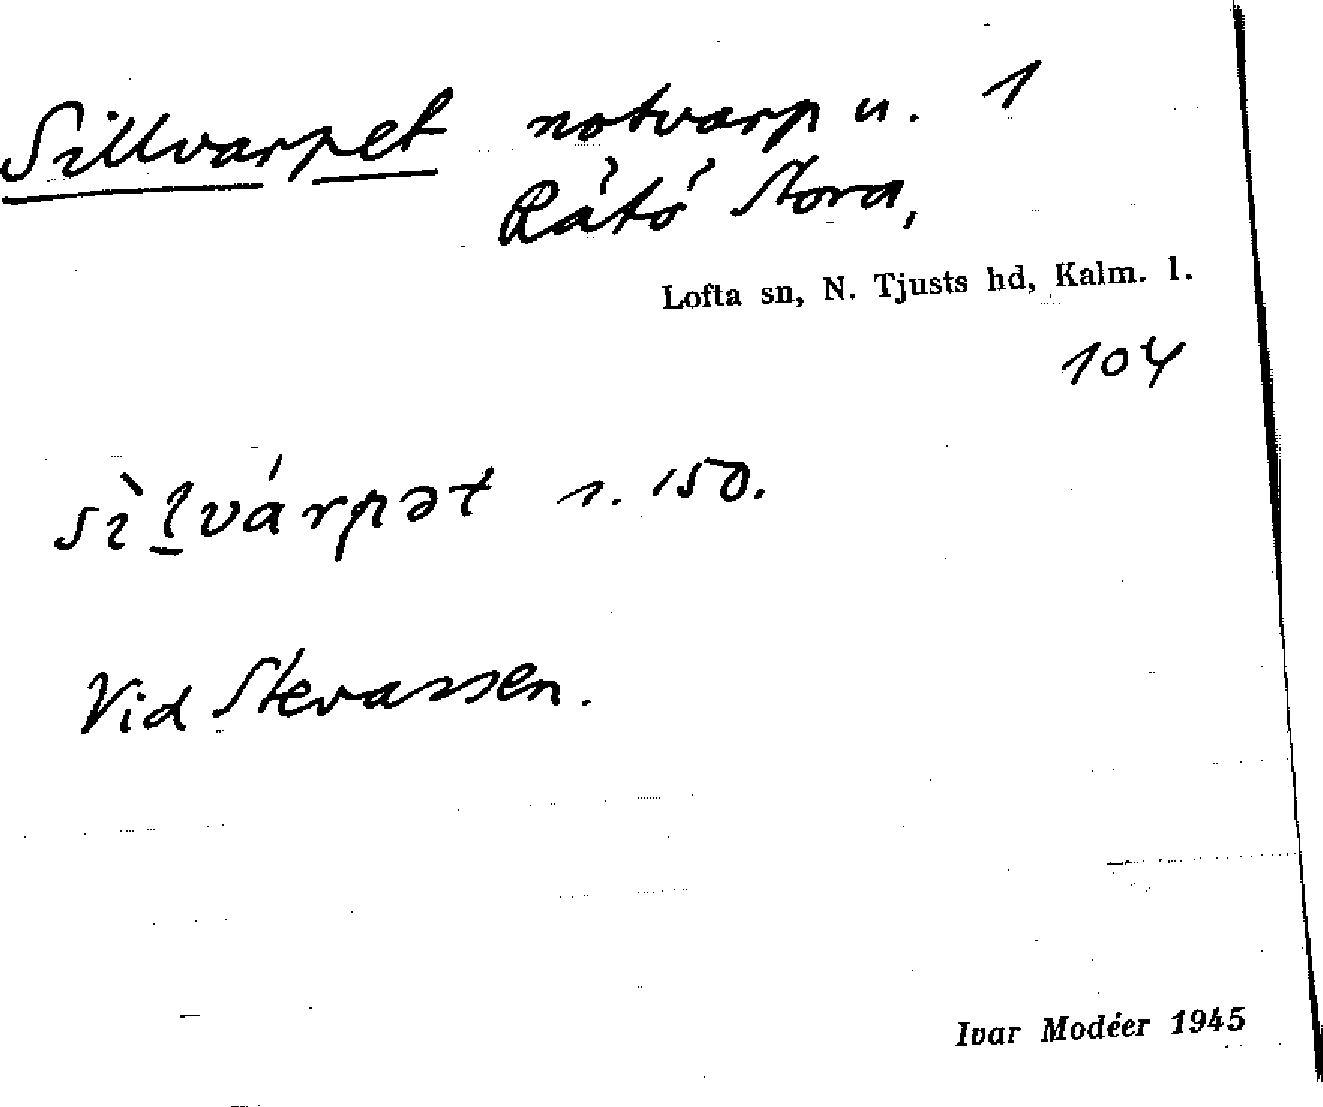 Sillvarpet notvarp u. 1
Råtö Stora,
Lofta sn, N. Tjusts hd, Kalm. l.
104
sìlvárpət s. 150.
Vid Stevassen.
Ivar Modéer 1945